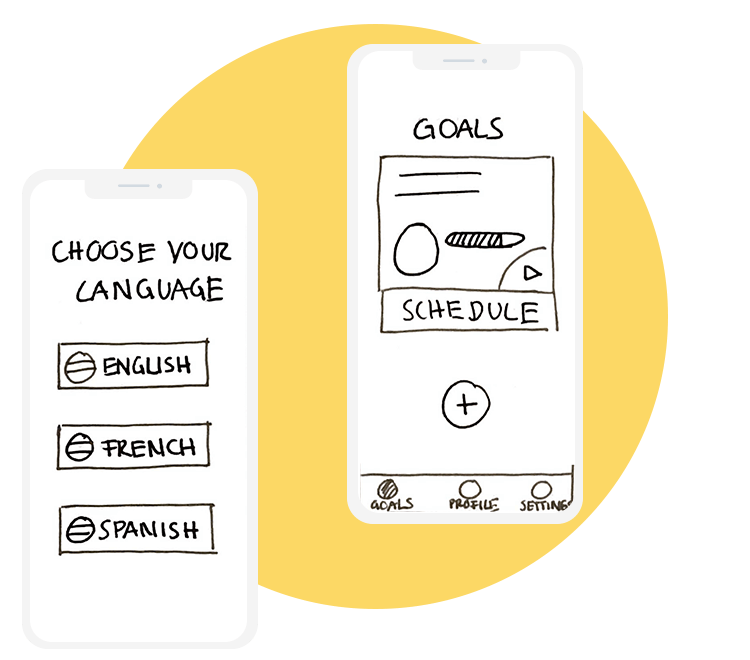 CHOOSE YOUR
LANGUAGE
ENGLISH
FRENCH
SPANISH
GOALS
SCHEDULE
GOALS
PROFILE
SETTING